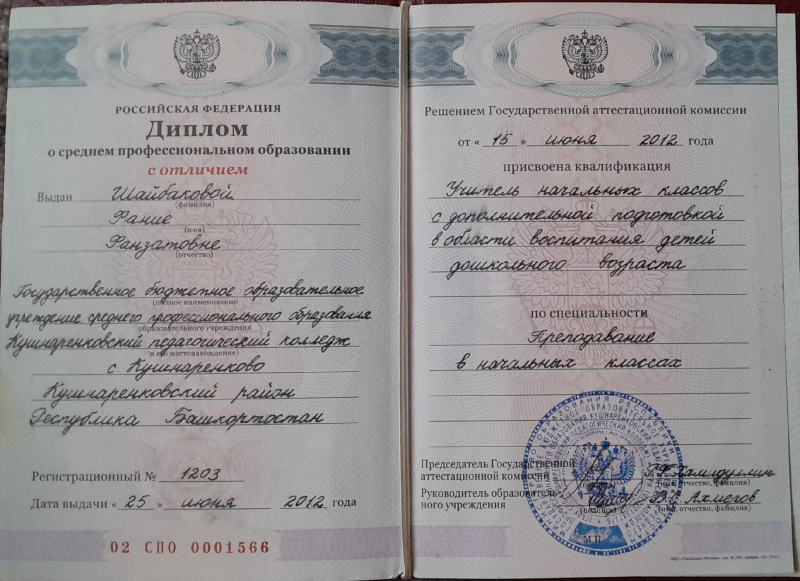 РОССИЙСКАЯ ФЕДЕРАЦИЯ
Диплом
о среднем профессиональном образовании
с отличием
Выдан Шайбаковой
(фамилия)
Рание
(имя)
Фанзатовне
(отчество)
Государственное бюджетное образовательное
(полное наименование
учреждение среднего профессионального образования
образовательного учреждения
Кушнаренковский педагогический колледж
и его местонахождение)
с. Кушнаренково
Кушнаренковский район
Республика Башкортостан
Регистрационный № 1203
Дата выдачи « 25 » июня 2012 года
02 СПО 0001566
Решением Государственной аттестационной комиссии
от « 15 » июня 2012 года
присвоена квалификация
Учитель начальных классов
с дополнительной подготовкой
в области воспитания детей
дошкольного возраста
по специальности
Преподавание
в начальных классах
Председатель Государственной
аттестационной комиссии
(имя, отчество, фамилия)
Руководитель образователь-
ного учреждения
(подпись) (имя, отчество, фамилия)
М.П.